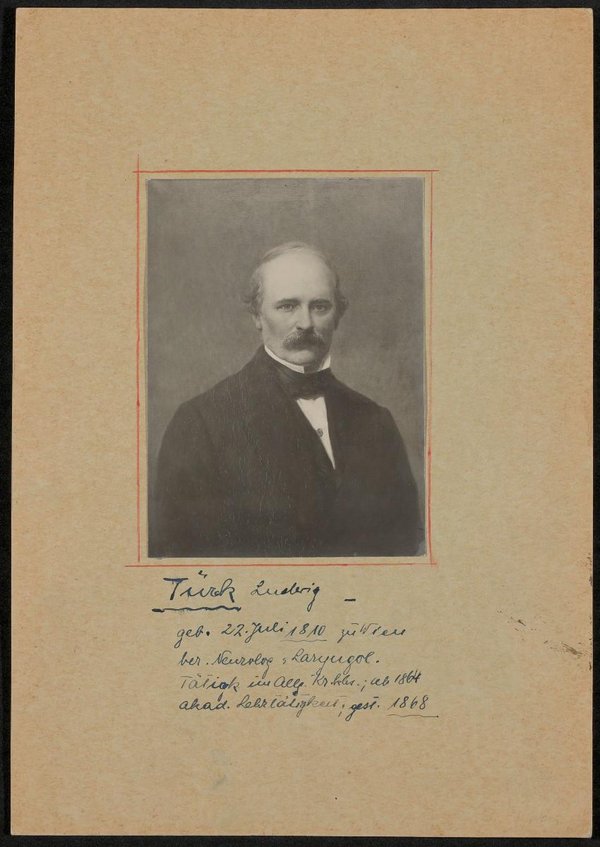 Türk Ludwig –
geb. 22. Juli 1810 zu Wien
ber. Neurolog u. Laryngol.
Tätigk. im Allg. Kr. hs.; ab 1864
akad. Lehrtätigkeit; gest. 1868